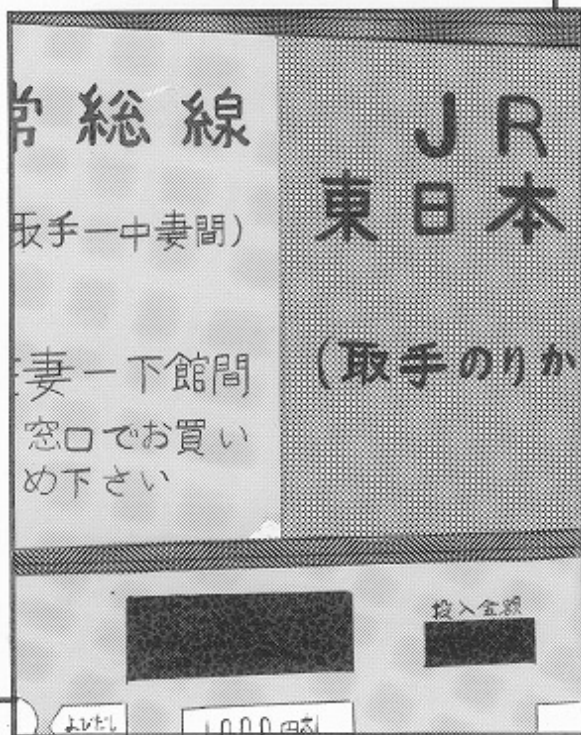 常総線
(取手ー中妻間)
妻ー下館間
窓口でお買い
め下さい
JR
東日本
(取手のりか
投入金額
よびだし
1000円札